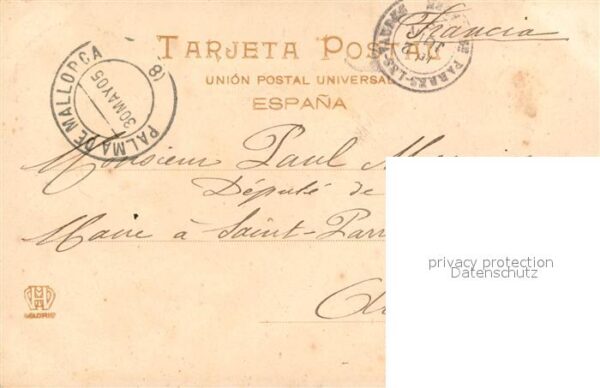 Francia
TARJETA POSTAL
UNIÓN POSTAL UNIVERSAL
ESPAÑA
PALMA DE MALLORCA
30 MAY 05
(8)
Monsieur Paul
Député de
Maire à Saint-Parr
privacy protection
Datenschutz
MADRID